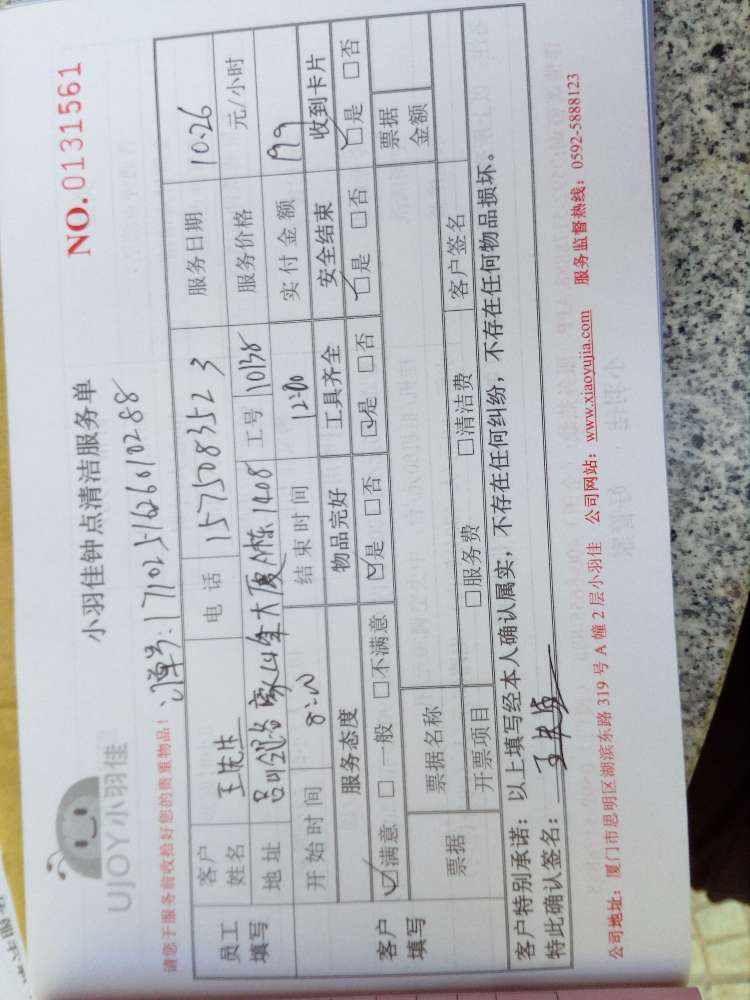 UJOY小羽佳
小羽佳钟点清洁服务单
NO.0131561
请您于服务前收拾好您的贵重物品！
订单号:1710231626010288
员工填写
客户姓名 王先生 电话 1575083523 服务日期 10.26
地址 大厦A栋1408 工号 10138 服务价格 元/小时
客户填写
开始时间 8:00 结束时间 12:00 实付金额 199
服务态度 物品完好 工具齐全 安全结束 收到卡片
☑满意 □一般 □不满意 ☑是 □否 ☑是 □否 ☑是 □否 ☑是 □否
票据 票据名称 票据金额
开票项目 □服务费 □清洁费 客户签名
客户特别承诺：以上填写经本人确认属实，不存在任何纠纷，不存在任何物品损坏。
特此确认签名：
公司地址：厦门市思明区湖滨东路 319 号 A 幢 2 层小羽佳 公司网站：www.xiaoyujia.com 服务监督热线：0592-5888123